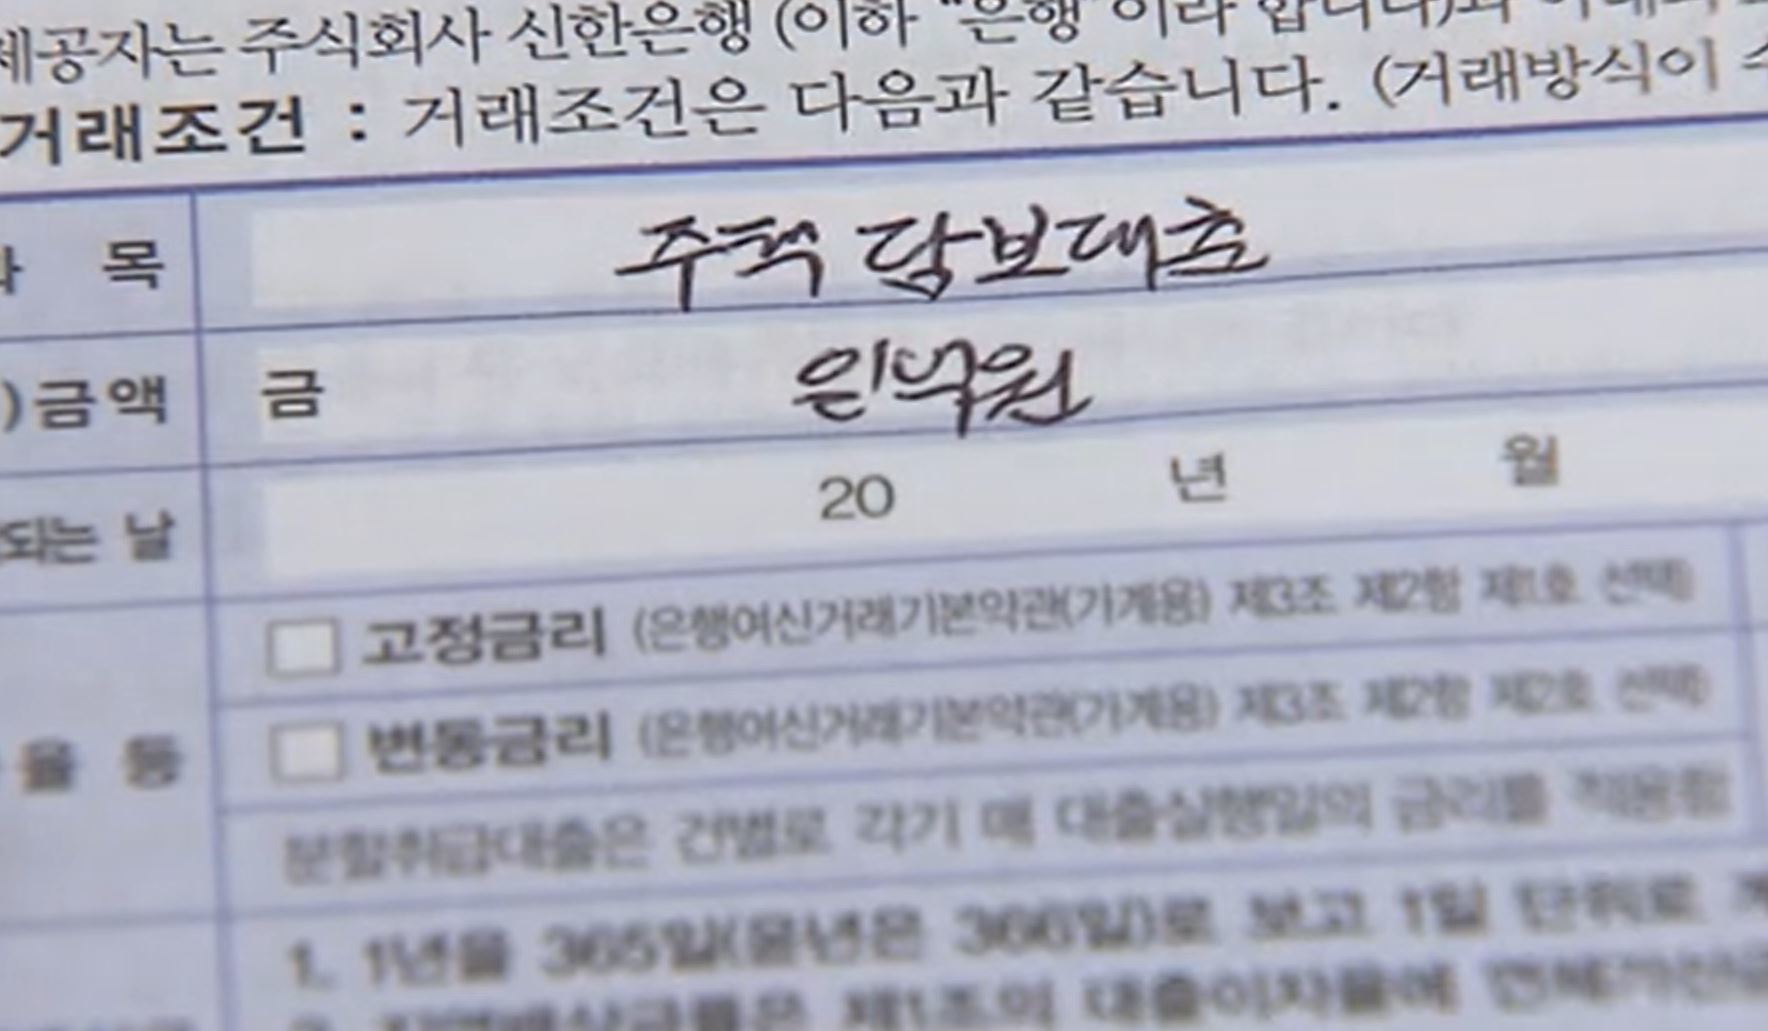 제공자는 주식회사 신한은행 (이하 "은행"이라 합니다)과
거래조건 : 거래조건은 다음과 같습니다. (거래방식이
목 주택 담보대출
)금액 금 일억원
되는 날 20 년 월
고정금리 (은행여신거래기본약관(가계용) 제3조 제2항 제1호 선택)
율 등
변동금리 (은행여신거래기본약관(가계용) 제3조 제2항 제2호 선택)
분할취급대출은 건별로 각기 매 대출실행일의 금리를 적용함
1. 1년을 365일(윤년은 366일)로 보고 1일 단위로
제1조의 대출이자율에